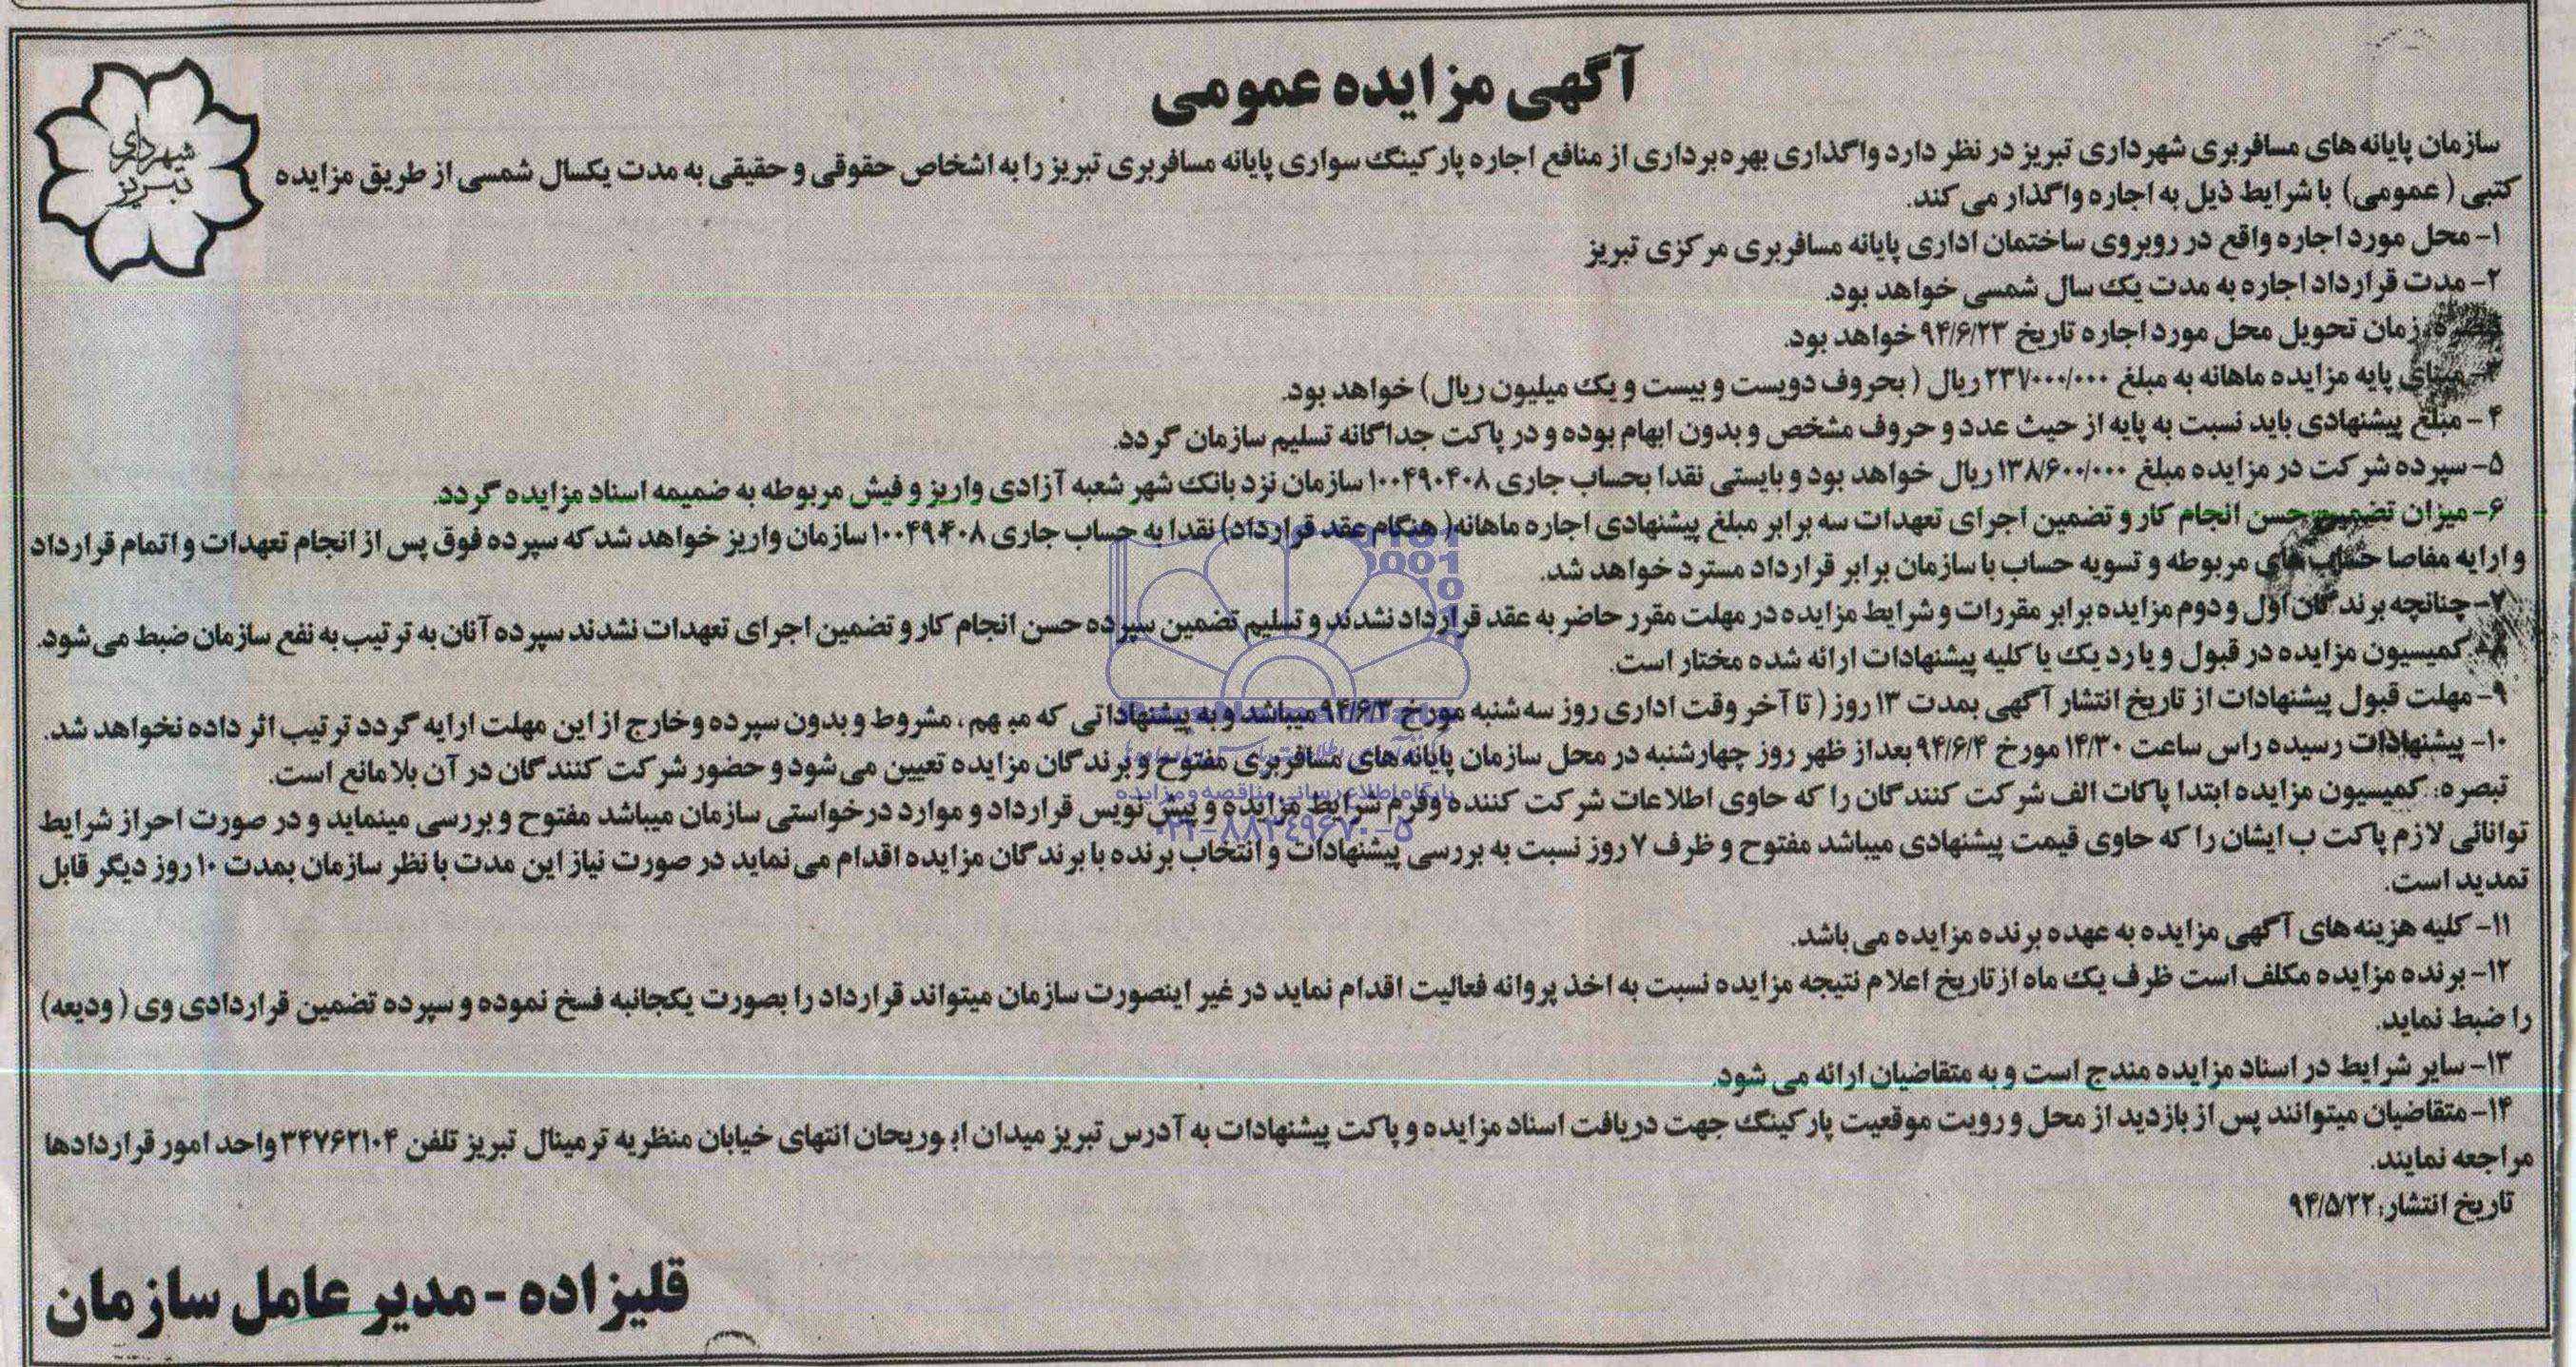 آگهی مزایده عمومی
شهرداری
تبریز
سازمان پایانه های مسافربری شهرداری تبریز در نظر دارد واگذاری بهره برداری از منافع اجاره پارکینگ سواری پایانه مسافربری تبریز را به اشخاص حقوقی و حقیقی به مدت یکسال شمسی از طریق مزایده
کتبی (عمومی) با شرایط ذیل به اجاره واگذار می کند.
۱- محل مورد اجاره واقع در روبروی ساختمان اداری پایانه مسافربری مرکزی تبریز
۲- مدت قرارداد اجاره به مدت یک سال شمسی خواهد بود.
زمان تحویل محل مورد اجاره تاریخ ۹۴/۶/۲۳ خواهد بود.
مبنای پایه مزایده ماهانه به مبلغ ۲۳۱/۰۰۰/۰۰۰ ریال (بحروف دویست و بیست و یک میلیون ریال) خواهد بود.
۴- مبلغ پیشنهادی باید نسبت به پایه از حیث عدد و حروف مشخص و بدون ابهام بوده و در پاکت جداگانه تسلیم سازمان گردد.
۵- سپرده شرکت در مزایده مبلغ ۱۳۸/۶۰۰/۰۰۰ ریال خواهد بود و بایستی نقدا بحساب جاری ۱۰۰۴۹۰۴۰۸ سازمان نزد بانک شهر شعبه آزادی واریز و فیش مربوطه به ضمیمه اسناد مزایده گردد.
۶- میزان تضمین حسن انجام کار و تضمین اجرای تعهدات سه برابر مبلغ پیشنهادی اجاره ماهانه (هنگام عقد قرارداد) نقدا به حساب جاری ۱۰۰۴۹۰۴۰۸ سازمان واریز خواهد شد که سپرده فوق پس از انجام تعهدات و اتمام قرارداد
و ارایه مفاصا حساب های مربوطه و تسویه حساب با سازمان برابر قرارداد مسترد خواهد شد.
۷- چنانچه برندگان اول و دوم مزایده برابر مقررات و شرایط مزایده در مهلت مقرر حاضر به عقد قرارداد نشدند و تسلیم تضمین سپرده حسن انجام کار و تضمین اجرای تعهدات نشدند سپرده آنان به ترتیب به نفع سازمان ضبط می شود.
۸- کمیسیون مزایده در قبول و یا رد یک یا کلیه پیشنهادات ارائه شده مختار است.
۹- مهلت قبول پیشنهادات از تاریخ انتشار آگهی بمدت ۱۳ روز (تا آخر وقت اداری روز سه شنبه مورخ ۹۴/۶/۳ میباشد و به پیشنهاداتی که مبهم، مشروط و بدون سپرده و خارج از این مهلت ارایه گردد ترتیب اثر داده نخواهد شد.
۱۰- پیشنهادات رسیده راس ساعت ۱۴/۳۰ مورخ ۹۴/۶/۴ بعداز ظهر روز چهارشنبه در محل سازمان پایانه های مسافربری مفتوح و برندگان مزایده تعیین می شود و حضور شرکت کنندگان در آن بلامانع است.
تبصره: کمیسیون مزایده ابتدا پاکات الف شرکت کنندگان را که حاوی اطلاعات شرکت کننده و فرم شرایط مزایده و پیش نویس قرارداد و موارد درخواستی سازمان میباشد مفتوح و بررسی مینماید و در صورت احراز شرایط
توانائی لازم پاکت ب ایشان را که حاوی قیمت پیشنهادی میباشد مفتوح و ظرف ۷ روز نسبت به بررسی پیشنهادات و انتخاب برنده با برندگان مزایده اقدام می نماید در صورت نیاز این مدت با نظر سازمان بمدت ۱۰ روز دیگر قابل
تمدید است.
۱۱- کلیه هزینه های آگهی مزایده به عهده برنده مزایده می باشد.
۱۲- برنده مزایده مکلف است ظرف یک ماه از تاریخ اعلام نتیجه مزایده نسبت به اخذ پروانه فعالیت اقدام نماید در غیر اینصورت سازمان میتواند قرارداد را بصورت یکجانبه فسخ نموده و سپرده تضمین قراردادی وی (ودیعه)
را ضبط نماید.
۱۳- سایر شرایط در اسناد مزایده مندج است و به متقاضیان ارائه می شود.
۱۴- متقاضیان میتوانند پس از بازدید از محل و رویت موقعیت پارکینگ جهت دریافت اسناد مزایده و پاکت پیشنهادات به آدرس تبریز میدان ابوریحان انتهای خیابان منظریه ترمینال تبریز تلفن ۳۴۷۶۲۱۰۴ واحد امور قراردادها
مراجعه نمایند.
تاریخ انتشار: ۹۴/۵/۲۲
قلیزاده - مدیر عامل سازمان
پایگاه اطلاع رسانی مناقصه و مزایده
۰۲۱-۸۸۳۴۹۶۷۰-۵